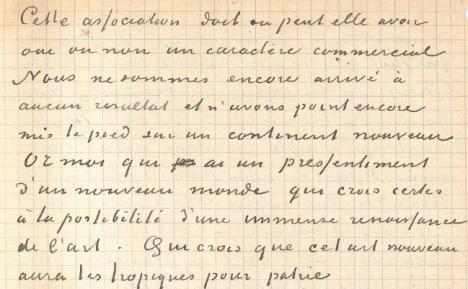 Cette association doit ou peut elle avoir
oui ou non un caractère commercial
Nous ne sommes encore arrivé à
aucun resultat et n'avons point encore
mis le pied sur un continent nouveau
Or moi qui ai un pressentiment
d'un nouveau monde qui crois certes
à la possibilité d'une immense renaissance
de l'art. Qui crois que cet art nouveau
aura les tropiques pour patrie